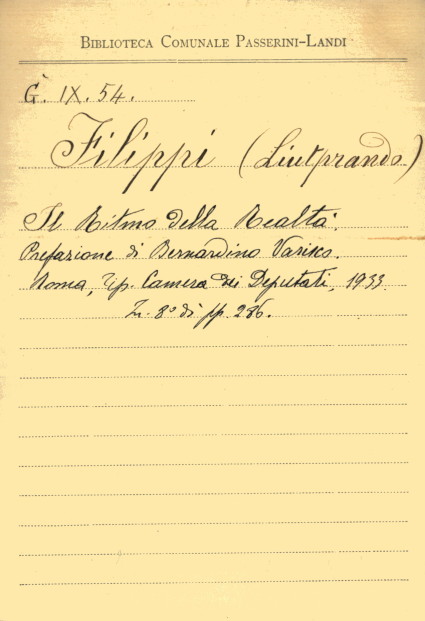 BIBLIOTECA COMUNALE PASSERINI-LANDI
G. IX. 54.
Filippi (Liutprando)
Il Ritmo della Realtà.
Prefazione di Bernardino Varisco.
Roma, Tip. Camera dei Deputati, 1933.
In-8° di pp. 286.